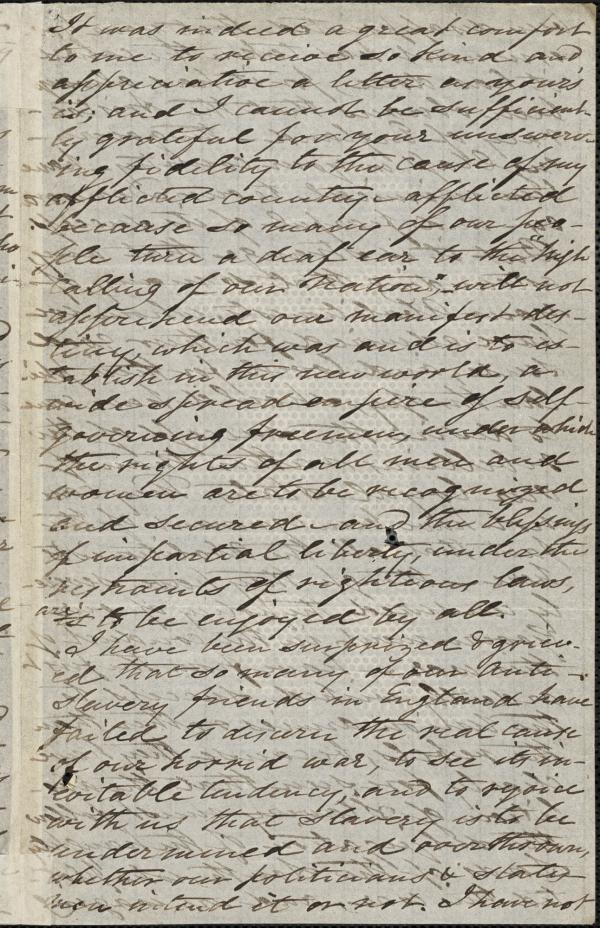 It was indeed a great comfort
to me to receive so kind and
appreciative a letter as yours
is; and I cannot be sufficient-
ly grateful for your unswerv-
ing fidelity to the cause of my
afflicted country - afflicted
because so many of our peo-
ple turn a deaf ear to the "high
calling of our nation", will not
apprehend our manifest des-
tiny, which was and is to es-
tablish in this new world a
wide spread empire of self-
governing freemen, under which
the rights of all men and
women are to be recognized
and secured - and the blessings
of impartial liberty, under the
restraints of righteous laws,
are to be enjoyed by all.
I have been surprized & griev-
ed that so many of our Anti-
Slavery friends in England have
failed to discern the real cause
of our horrid war, to see its in-
evitable tendency, and to rejoice
with us that slavery is to be
undermined and overthrown,
whether our politicians & states
men intend it or not. I have not